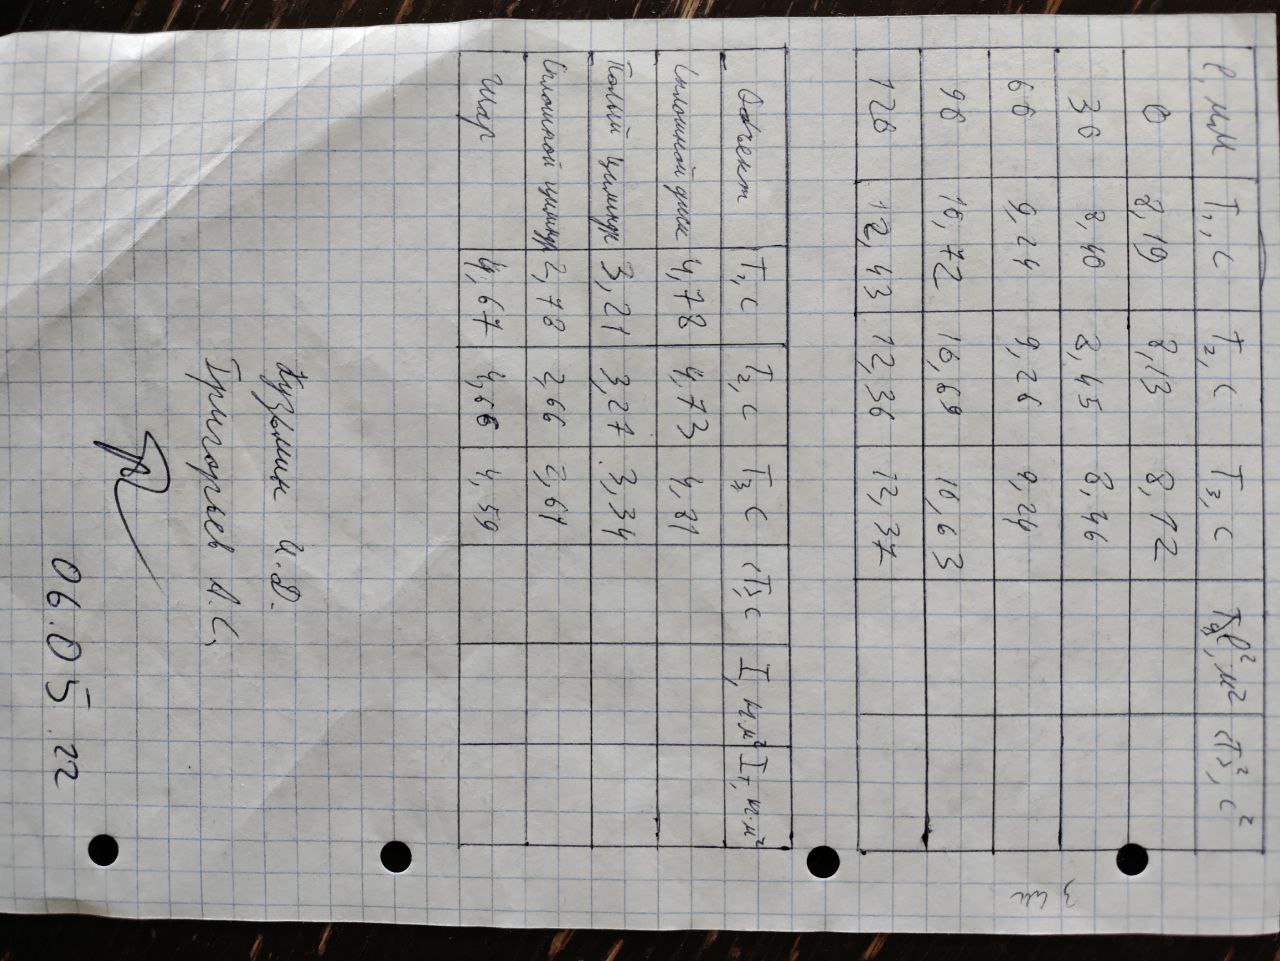 l, мм T₁, c T₂, c T₃, c l², м² ⟨T⟩², c²
0 8,19 8,13 8,12
30 8,40 8,45 8,46
60 9,24 9,26 9,24
90 10,72 10,69 10,63
120 12,43 12,36 12,37
Объект T₁, c T₂, c T₃, c ⟨T⟩, c I, кг.м² Iт, кг.м²
Сплошной диск 4,78 4,73 4,81
Полый цилиндр 3,21 3,27 3,34
Сплошной цилиндр 2,78 2,66 2,61
Шар 4,67 4,66 4,59
Кузьмин И.Д.
Григорьев А.С.
06.05.22